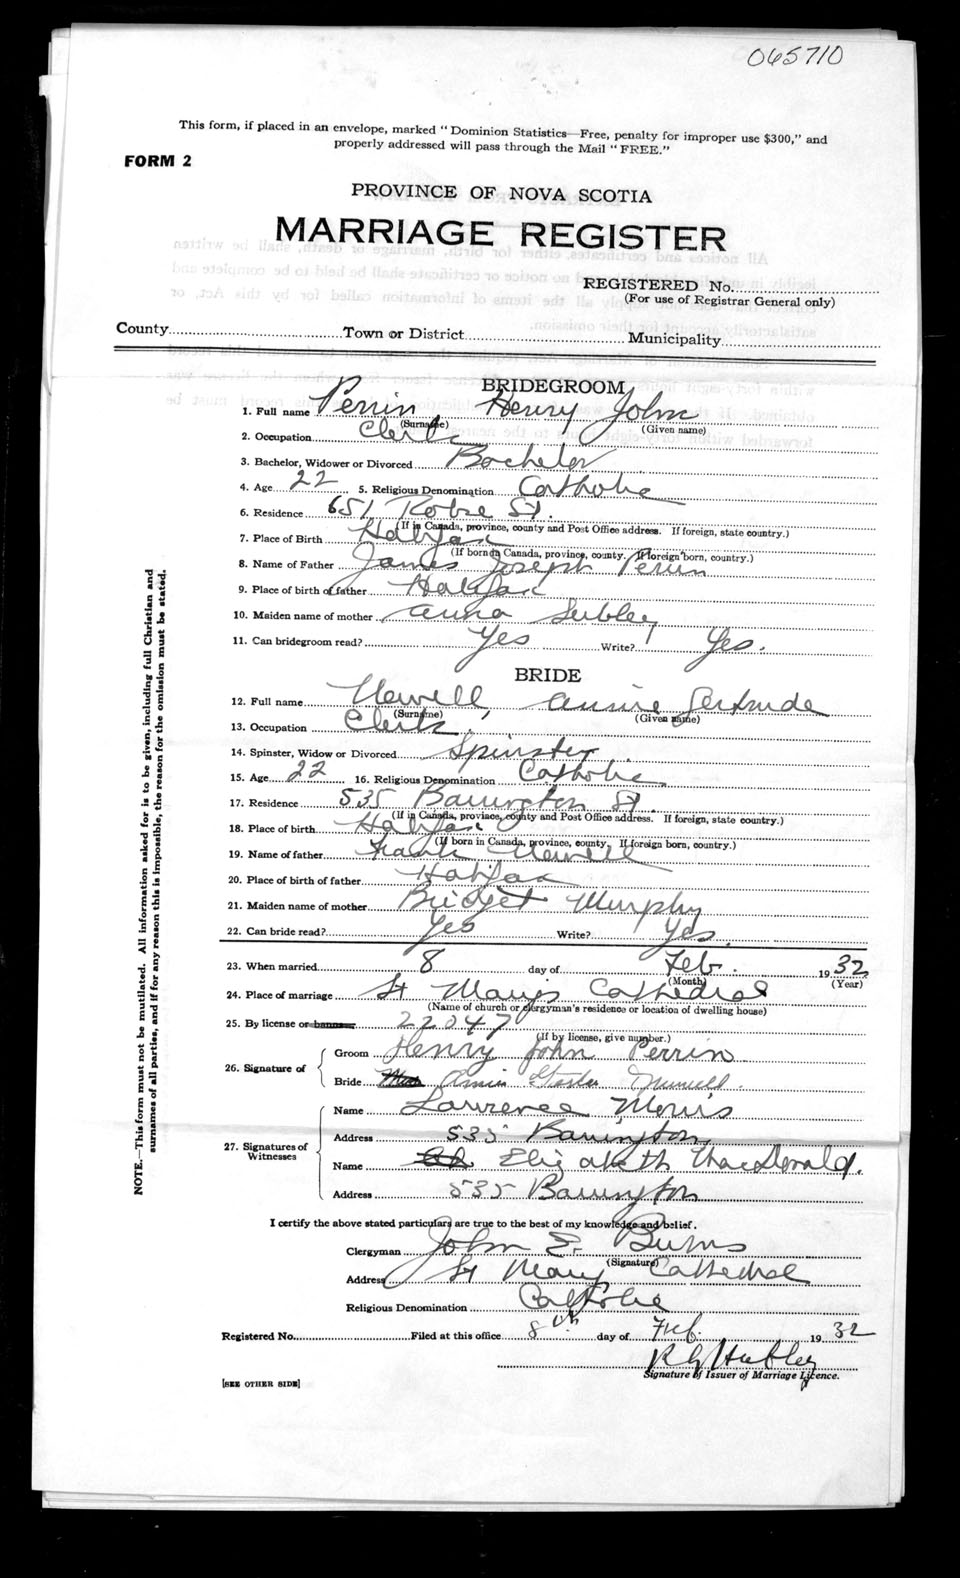 065710
This form, if placed in an envelope, marked "Dominion Statistics—Free, penalty for improper use $300," and
properly addressed will pass through the Mail "FREE."
FORM 2
PROVINCE OF NOVA SCOTIA
MARRIAGE REGISTER
REGISTERED No.
(For use of Registrar General only)
County Town or District Municipality
BRIDEGROOM
1. Full name Perrin, Henry John
(Surname) (Given name)
2. Occupation Clerk
3. Bachelor, Widower or Divorced Bachelor
4. Age 22 5. Religious Denomination Catholic
6. Residence 651 Robie St.
(If in Canada, province, county and Post Office address. If foreign, state country.)
7. Place of Birth Halifax
(If born in Canada, province, county. If foreign born, country.)
8. Name of Father James Joseph Perrin
9. Place of birth of father Halifax
10. Maiden name of mother Anna
11. Can bridegroom read? Yes Write? Yes.
BRIDE
12. Full name Newell, Annie Gertrude
(Surname) (Given name)
13. Occupation Clerk
14. Spinster, Widow or Divorced Spinster
15. Age 22 16. Religious Denomination Catholic
17. Residence 535 Barrington St.
(If in Canada, province, county and Post Office address. If foreign, state country.)
18. Place of birth Halifax
(If born in Canada, province, county. If foreign born, country.)
19. Name of father Frank Newell
20. Place of birth of father Halifax
21. Maiden name of mother Bridget Murphy
22. Can bride read? Yes Write? Yes.
23. When married 8 day of Feb. 1932
(Month) (Year)
24. Place of marriage St Mary's Cathedral
(Name of church or clergyman's residence or location of dwelling house)
25. By license or banns 22047
(If by license, give number.)
26. Signature of Groom Henry John Perrin
Bride
27. Signatures of Witnesses Name Lawrence Morris
Address 535 Barrington
Name Elizabeth MacDonald.
Address 535 Barrington
I certify the above stated particulars are true to the best of my knowledge and belief.
Clergyman John E. Burns
(Signature)
Address St Mary Cathedral
Religious Denomination Catholic
Registered No. Filed at this office 8th day of Feb. 1932
R G Hubley
Signature of Issuer of Marriage Licence.
[SEE OTHER SIDE]
NOTE.—This form must not be mutilated. All information asked for is to be given, including full Christian and
surnames of all parties, and if for any reason this is impossible, the reason for the omission must be stated.